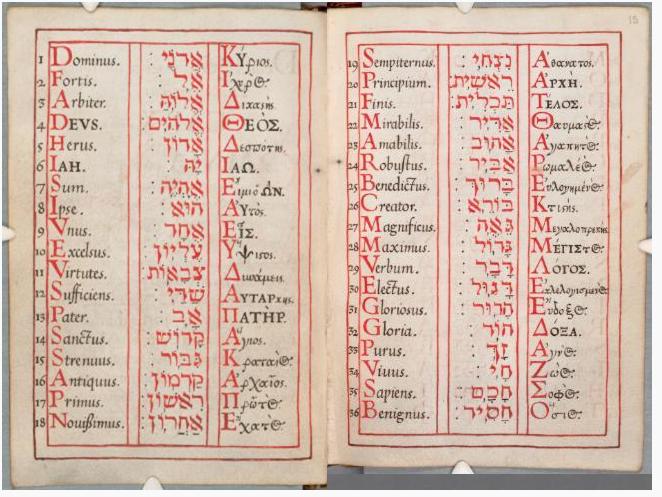 1 Dominus. אֲדֹנָי : Κύριος.
2 Fortis. אֵל : Ἰχυρὸς.
3 Arbiter. אֱלוֹהַּ : Δικαςὴς.
4 DEVS. אֱלֹהִים : ΘΕΟΣ.
5 Herus. אָדוֹן : Δεσποτης.
6 IAH. יָהּ : ΙΑΩ.
7 Sum. אֶהְיֶה : Εἰμι ὁ ΩΝ.
8 Ipse. הוּא : Αὐτος.
9 Vnus. אֶחָד : ΕἸΣ.
10 Excelsus. עֶלְיוֹן : Ὕψιςος.
11 Virtutes. צְבָאוֹת : Δυνάμεις.
12 Sufficiens. שַׁדַּי : ΑΥΤΑΡκης.
13 Pater. אָב : ΠΑΤΗΡ.
14 Sanctus. קָדוֹשׁ : Ἅγιος.
15 Strenuus. גִּבּוֹר : Κραταιὸς.
16 Antiquus. קַדְמוֹן : Ἀρχαῖος.
17 Primus. רִאשׁוֹן : Πρῶτος.
18 Nouissimus. אַחֲרוֹן : Ἔχατος.
15
19 Sempiternus. נִצְחִי : Ἀθανατος.
20 Principium. רֵאשִׁית : ἈΡΧΗ.
21 Finis. תַּכְלִית : ΤΕΛΟΣ.
22 Mirabilis. אַדִּיר : Θαυμαςὸς.
23 Amabilis. אָהוּב : Ἀγαπητὸς.
24 Robustus. אַבִּיר : Ῥωμαλέος.
25 Benedictus. בָּרוּךְ : Εὐλογημένος.
26 Creator. בּוֹרֵא : Κτιςης.
27 Magnificus. גֵּאֶה : Μεγαλοπρεπης.
28 Maximus. גָּדוֹל : ΜΕΓΙΣΤος.
29 Verbum. דָּבָר : ΛΟΓΟΣ.
30 Electus. דָּגוּל : Ἐκλελογισμενος.
31 Gloriosus. הָדוּר : Ἔυδοξος.
32 Gloria. הוֹד : ΔΟΞΑ.
33 Purus. זַךְ : Ἁγνὸς.
34 Viuus. חַי : Ζωὸς.
35 Sapiens. חָכָם : Σοφὸς.
36 Benignus. חָסִיד : Ὅσιος.